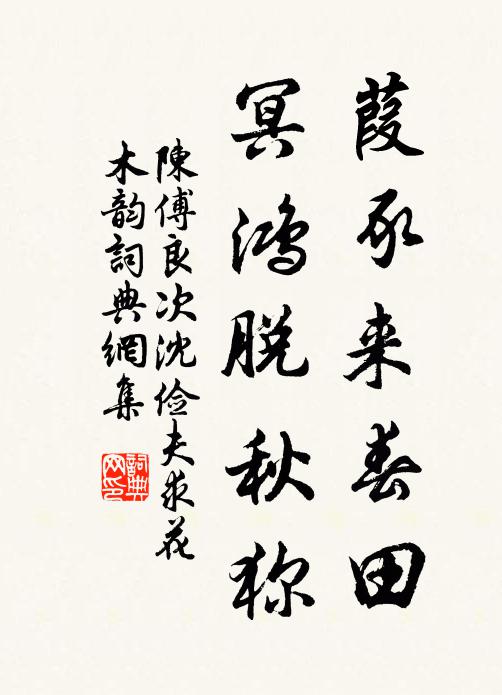 葭豕来春田
冥鸿脱秋狝
陳傅良次沈俭夫求花
木韵詞典網集
詞典网印